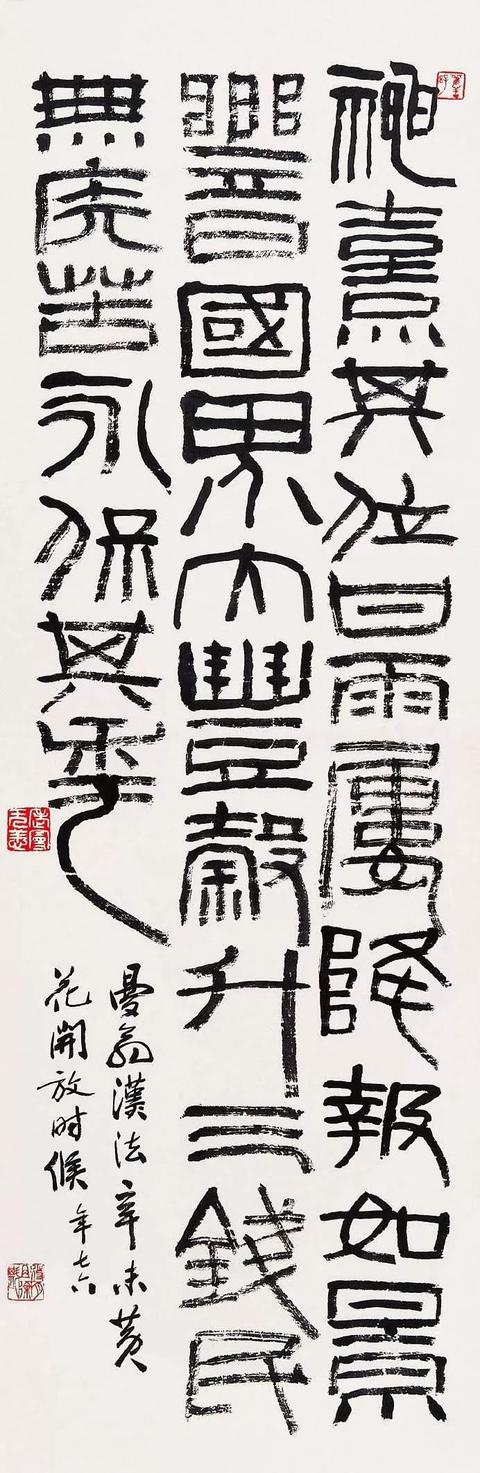 神熹其位甘雨屢降報如景
響國界大豐穀斗三錢民
無疾苦永保其年
翁漢法辛未黃
花開放时候年七六